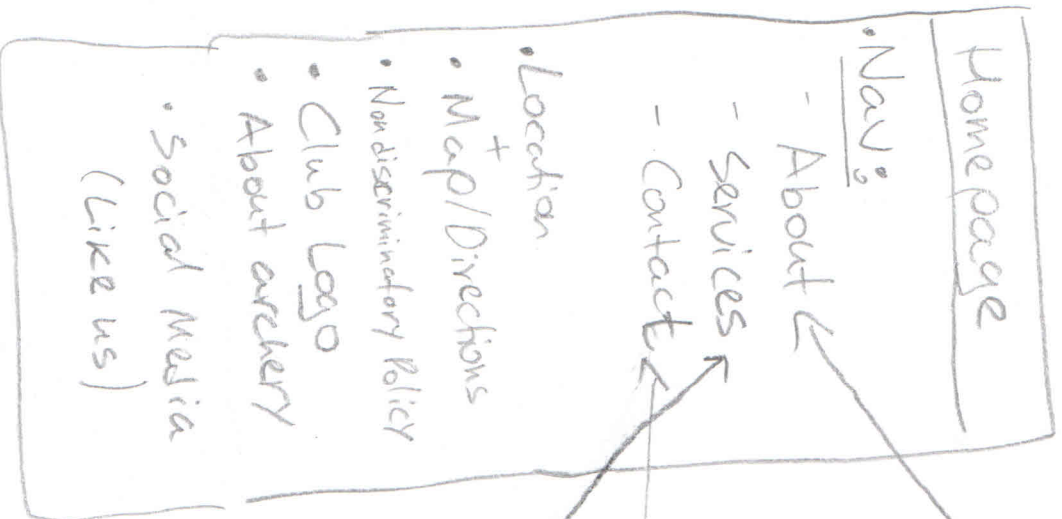 Homepage
• Nav:
- About
- Services
- Contact
• Location
+
• Map/Directions
• Nondiscriminatory Policy
• Club Logo
• About archery
• Social Media
(Like us)